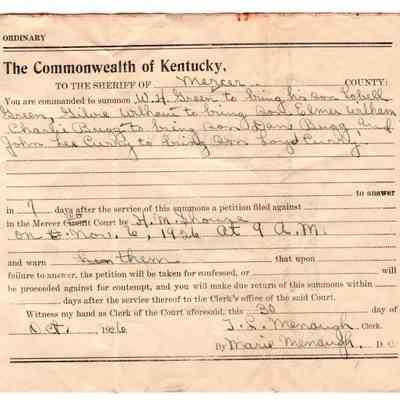 ORDINARY
The Commonwealth of Kentucky,
TO THE SHERIFF OF Mercer COUNTY:
You are commanded to summon W. H. Green to bring his son
Green, to bring son Elmer
Charlie Bugg to bring son Dave Bugg and
John Lee Curry to bring son Loyd Curry
to answer
in 7 days after the service of this summons a petition filed against
in the Mercer Circuit Court by H. M.
on Nov. 6, 1926 at 9 A.M.
and warn them that upon
failure to answer, the petition will be taken for confessed, or will
be proceeded against for contempt, and you will make due return of this summons within
days after the service thereof to the Clerk's office of the said Court.
Witness my hand as Clerk of the Court aforesaid, this 30 day of
Oct. 1926 T. S. Menaugh, Clerk.
By Marie Menaugh, D. C.